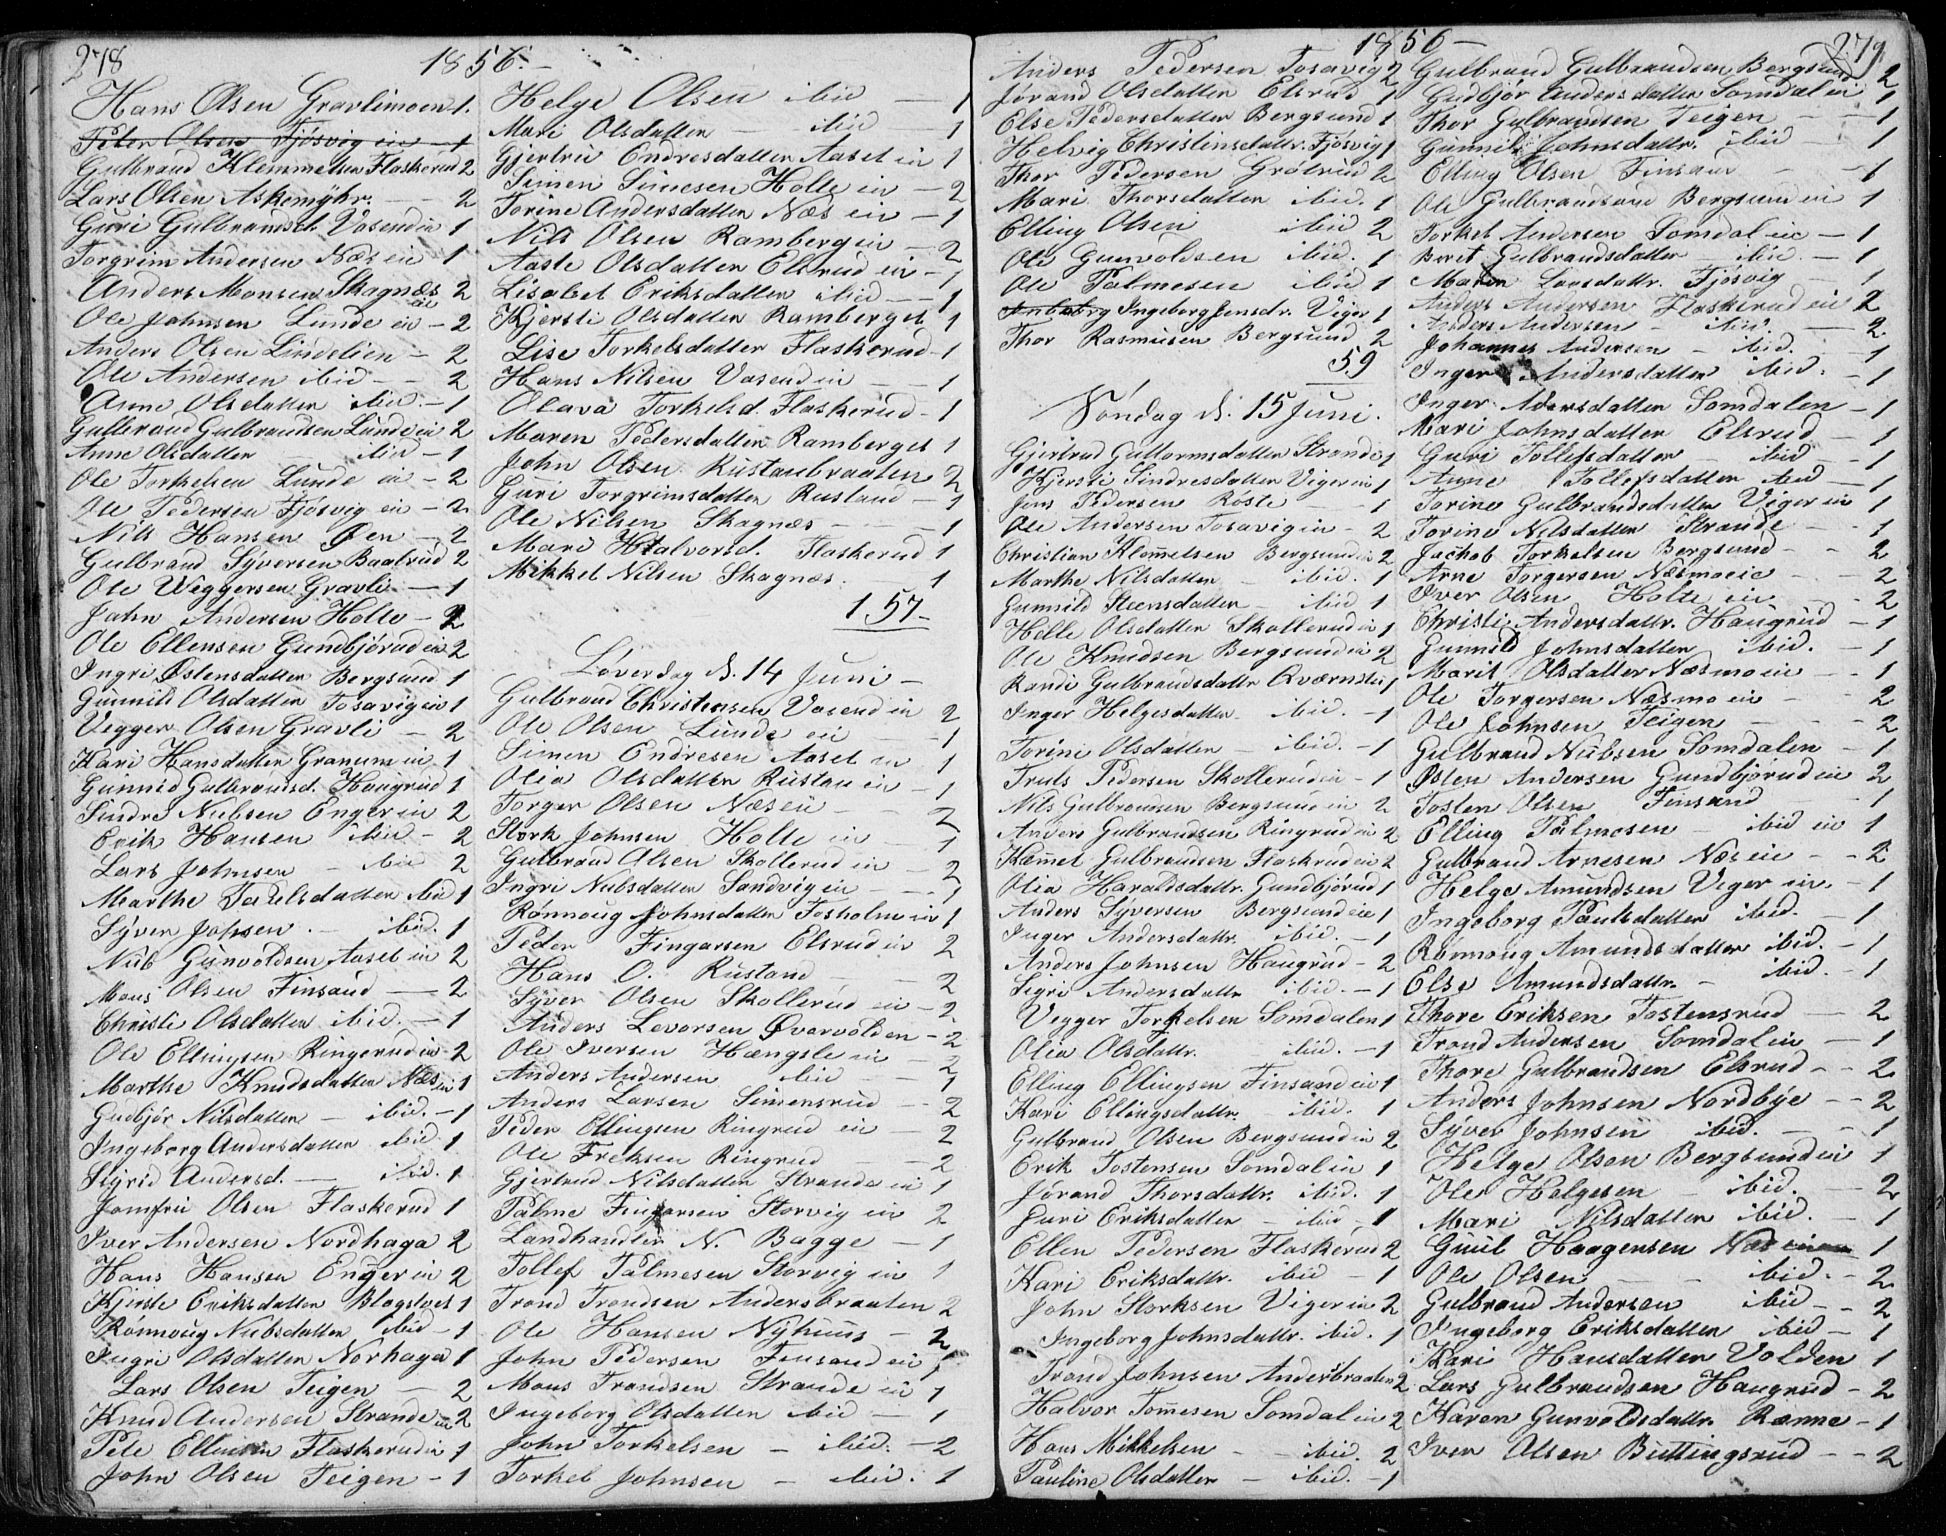 278
1856.
Hans Olsen Gravlimoen 1.
Peter Olsen Fjøsvig ein 1
Gulbrand Klemmetsen Flaskerud 2
Lars Olsen Askemÿhr. 2
Guri Gulbrandsd. Vasend ein 1
Torgrim Andersen Næs ein 1
Anders Monsen Skagnæs ein 2
Ole Johnsen Lunde ein - 2
Anders Olsen Lindelien - 2
Ole Andersen ibid - 2
Anne Olsdatter ibid. - 1
Gulbrand Gulbrandsen Lunde ein 2
Anne Olsdatter ibid - 1
Ole Torkelsen Lunde ein - 2
Ole Pedersen Fjøsvig ein - 2
Nils Hansen Øen - 2
Gulbrand Sÿversen Baalrud 2
Ole Weggersen Gravli - 1
John Andersen Holte - 2
Ole Ellensen Gundbjørud ein 2
Ingri Østensdatter Bergsund 1
Gunnild Olsdatter Tosavig ein 1
Vegger Olsen Gravli - 2
Kari Hansdatter Granum ein 1
Gunnild Gulbrandsd. Haugrud 1
Sindre Nubsen Enger ein 2
Erik Hansen ibid - 2
Lars Johnsen - ibid 2
Marthe Torkelsdatter ibid 1
Sÿver Johsen. - ibid. 1
Nub Gunvoldsen Aaset ein 2
Mons Olsen Finsand - 2
Christi Olsdatter ibid. - 1
Ole Ellingsen Ringerud ein 2
Marthe Knudsdatter Næs ein 1
Gudbjør Nilsdatter - ibid. - 1
Ingeborg Andersdatter ibid. 1
Sigrid Andersd. - ibid. 1
Jomfru Olsen Flaskerud 1
Iver Andersen Nordhaga 2
Hans Hansen Enger ein 2
Kjersti Eriksdatter Blagstvet 1
Rønnoug Nubsdatter ibid - 1
Ingri Olsdatter Norhaga 1
Lars Olsen Teigen - 2
Knud Andersen Strande ein 2
Pete Ellensen Flaskerud ein 1
John Olsen Teigen - 1
Helge Olsen ibid - 1
Mari Olsdatter - ibid - 1
Gjertrü Endresdatter Aaset ein 1
Simen Simesen Holte ein - 2
Torine Andersdatter Næs ein - 1
Nils Olsen Ramberg ein - 2
Aaste Olsdatter Elsrud ein - 1
Lisabet Eriksdatter ibid - 1
Kjersti Olsdatter Ramberget 1
Lise Torkelsdatter Flaskerud - 1
Hans Nilsen Vasend ein - 1
Olava Torkelsd. Flaskerud - 1
Maren Pedersdatter Ramberget 1
John Olsen Rustanbraaten 2
Guri Torgrimsdatter Rustand - 1
Ole Nilsen Skagnæs - 1
Mari Halvorsd. Flaskerud 1
Mikkel Nilsen Skagnæs. 1
157
Løverdag d. 14 Juni -
Gulbrand Christensen Vasend ein 2
Ole Olsen Lunde ein - 1
Simen Endresen Aaset ein 1
Olia Olsdatter Rustan ein - 1
Torger Olsen Næs ein - 2
Stork Johnsen Holte ein - 1
Gulbrand Olsen Skollerud ein 2
Ingri Nubsdatter Sandvig ein - 1
Rønnoug Johnsdatter Fosholm ein 1
Peder Fingarsen Elsrud ein 2
Hans O. Rustand - 2
Sÿver Olsen Skollerud ein - 2
Anders Levorsen Øvervolden - 2
Ole Iversen Hængsle ein - 2
Anders Andersen ibid - 1
Anders Larsen Simensrud - 2
Peder Ellingsen Ringrud ein - 2
Ole Freksen Ringrud - 2
Gjertrud Nilsdatter Strande ein 1
Palme Fingarsen Storvig ein 2
Landhandler N. Bagge - 1
Tollef Palmesen Storvig ein 1
Trond Trondsen Andersbraaten 2
Ole Hansen Nÿhuus - 2
John Pedersen Finsand ein 1
Mons Trondsen Strande ein 1
Ingeborg Olsdatter ibid - 1
John Torkelsen - ibid. - 2
Torkel Johnsen - ibid. 1
1856 -
279
Anders Pedersen Tosavig 2
Jørand Olsdatter Elsrud 1
Else Pedersdatter Bergsund 1
Helvig Christinsdattr. Fjøsvig 1
Thor Pedersen Grøtrud 2
Mari Thorsdatter ibid. 1
Elling Olsen ibid 2
Ole Gunvoldsen ibid. 1
Ole Palmesen ibid 1
Inbeborg Ingeborg Jensdr. Viger 1
Thor Rasmusen Bergsund 2
59
Søndag d. 15 Juni.
Gjertrud Guttormsdatter Strande 1
Kjersti Sindresdatter Viger ein 1
Jens Pedersen Røste - 1
Ole Andersen Tosavig ein - 2
Christian Klemetsen Bergsund ein 2
Marthe Nilsdatter - ibid. 1
Gunnild Steensdatter - ibid 1
Helle Olsdatter Skollerud ein 1
Ole Knudsen Bergsund ein 2
Randi Gulbrandsdattr Qværnsti 1
Inger Helgesdatter - ibid. - 1
Torine Olsdatter - ibid. - 1
Truls Pedersen Skollerud ein - 1
Nils Gulbransen Bergsund ein 2
Anders Gulbrandsen Ringrud ein 2
Klemet Gulbrandsen Flaskrud ein 2
Olia Haraldsdattr. Gundbjørud 1
Anders Sÿversen Bergsund eie 1
Inger Andersdattr. ibid. - 1
Anders Johnsen Haugrud - 2
Sigri Andersdattr ibid. - 1
Vegger Torkelsen Somdalen 1
Olia Olsdattr. ibid. - 1
Elling Ellingsen Finsand ein 1
Kari Ellingsdattr. ibid. 1
Gulbrand Olsen Bergsund ein 2
Erik Tostensen Somdal ein 1
Jørand Thorsdattr. ibid. 1
Guri Eriksdatter - ibid - 1
Ellen Pedersen Flaskerud 2
Kari Eriksdattr. ibid - 1
John Storksen Viger ein 2
Ingeborg Johnsdattr. ibid. 1
Trond Johnsen Andersbraaten 2
Halvor Tomesen Somdal ein 2
Hans Mikkelsen - ibid. 2
Pauline Olsdatter - ibid. - 1
Gulbrand Gulbrandsen Bergsund 2
Gudbjør Andersdatter Somdal ein 1
Thor Gulbransen Teigen - 1
Gunnild Johnsdattr. ibid - 1
Elling Olsen Finsand - 1
Ole Gulbrandsen Bergsund ein 1
Torkel Andersen Somdal ein - 1
Berit Gulbrandsdatter - ibid. - 1
Maren Larsdattr. Fjøsvig - 1
Anders Andersen Flaskerud ein 2
Anders Andersen - ibid. - 2
Johannes Andersen - ibid. - 1
Inger Andersdatter ibid. - 1
Inger Andersdatter Somdalen - 1
Mari Johnsdatter Elsrud - 1
Guri Tollefsdatter - ibid - 1
Anne Tollefsdatter ibid - 1
Torine Gulbrandsdatter Viger ein 1
Torine Nilsdatter Strande - 1
Jachob Torkelsen Bergsund - - 2
Arne Torgersen Næsmoeie - - 2
Iver Olsen Holte ein - - 2
Christi Andersdattr. Haugrud - 1
Gunnild Johnsdatter ibid. - 1
Marit Olsdatter Næsmoein - - 1
Ole Torgersen Næsmoein - 2
Ole Johnsen Teigen - - - 2
Gulbrand Nubsen Somdalen - 1
Østen Andersen Gundbjørud ein 2
Tosten Olsen Finsand - 1
Elling Palmesen - ibid ein 1
Gulbrand Arnesen Næs ein - - 2
Helge Amundsen Viger ein. - 1
Ingeborg Paulsdatter ibid. - 1
Rønnoug Amundsdatter ibid. - 1
Else Amundsdattr. - ibid. - 1
Thore Eriksen Tostensrud - 2
Trond Andersen Somdal ein - 1
Thore Gulbrandsen Elsrud - - 2
Anders Johnsen Nordbÿe - - 2
Sÿver Johnsen ibid. - - 1
Helge Olsen Bergsund ein 1
Ole Helgesen - ibid. - 2
Mari Nilsdatter ibid. - 1
Guul Haagensen Næs ein 1
Ole Olsen - - ibid. - 2
Gulbrand Andersen ibid - - 2
Ingeborg Eriksdatter ibid - 1
Kari Hansdatter Volden 1
Lars Gulbrandsen Haugrud - 2
Karen Gunvoldsdattr. Rænne - 1
Iver Olsen Buttingsrud - - 2